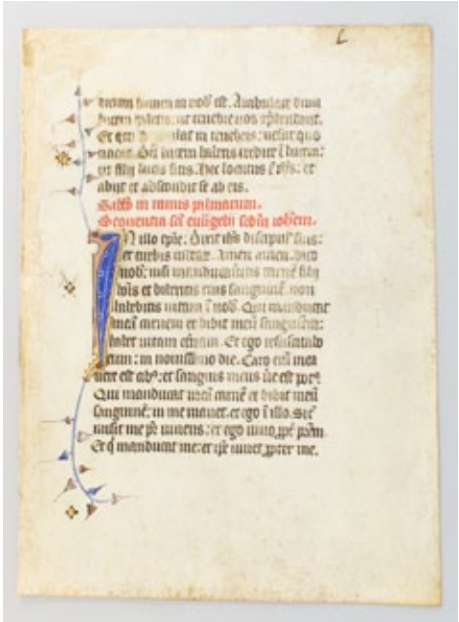 lumen in vob est. Ambulate dum
lucem habetis: ut tenebre vos
Et qui ambulat in tenebris: nescit quo
vadat. Dum lucem habetis credite ī lucem:
ut filij lucis sitis. Hec locutus ē ihs: et
abijt et abscondit se ab eis.
Sabbō in ramis palmarum.
Sequentia scī euāgelij scdm iohem.
IN illo tpre: Dixit ihs discipul suis:
et turbis Amen amen dico
vobis: nisi manducaveritis carnē filij
hōis et biberitis eius sanguinē: non
habebitis vitam ī vob. Qui manducat
meā carnem et bibit meū sanguinem:
habet vitam eternā. Et ego resuscitabo
eum: in novissimo die. Caro enī mea
vere est cibꝰ: et sanguis meus est potꝰ
Qui manducat meā carnē et bibit meū
sanguinē: in me manet. et ego ī illo. Sic
misit me pr̄ vivens: et ego vivo ꝓpt prēm.
Et q manducat me: et ipē vivet ꝓpter me.